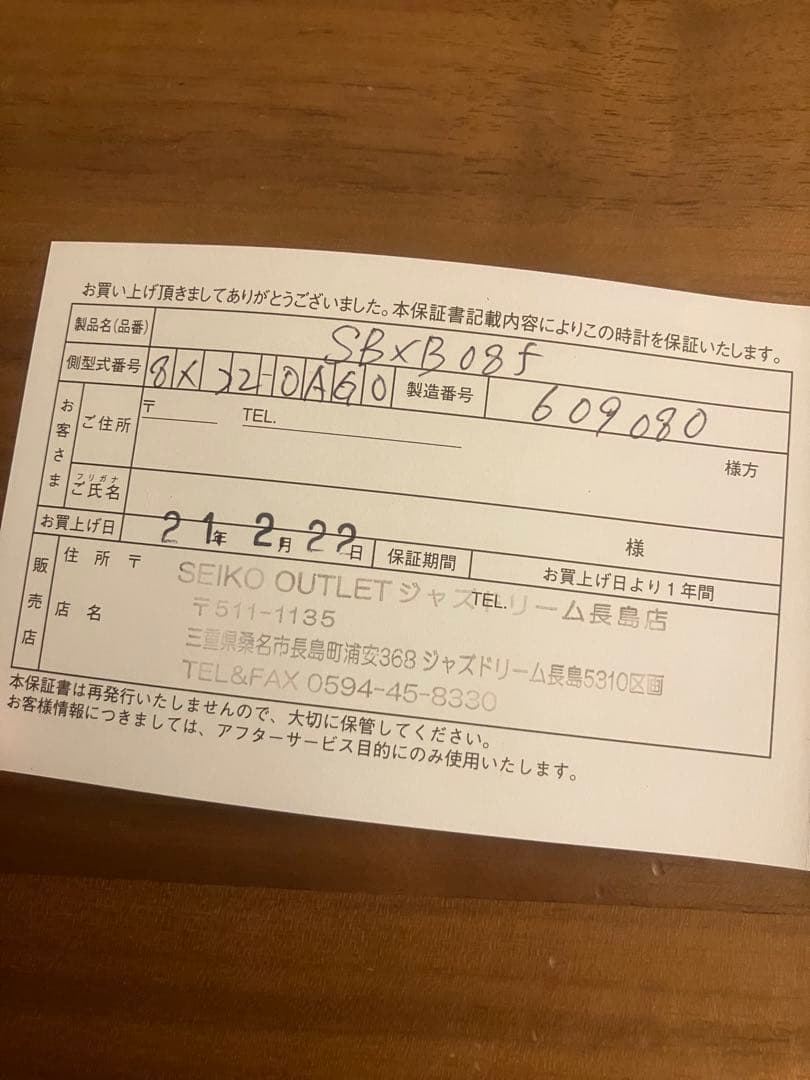 お買い上げ頂きましてありがとうございました。本保証書記載内容によりこの時計を保証いたします。
製品名(品番) SBXB085
側型式番号 8X22-0AG0 製造番号 609080
お客さま
ご住所 〒 TEL.
様方
フリガナ
ご氏名
様
お買上げ日 21年2月22日 保証期間 お買上げ日より1年間
販売店
住所 〒 TEL.
店名
SEIKO OUTLET ジャズドリーム長島店
〒511-1135
三重県桑名市長島町浦安368 ジャズドリーム長島5310区画
TEL&FAX 0594-45-8330
本保証書は再発行いたしませんので、大切に保管してください。
お客様情報につきましては、アフターサービス目的にのみ使用いたします。